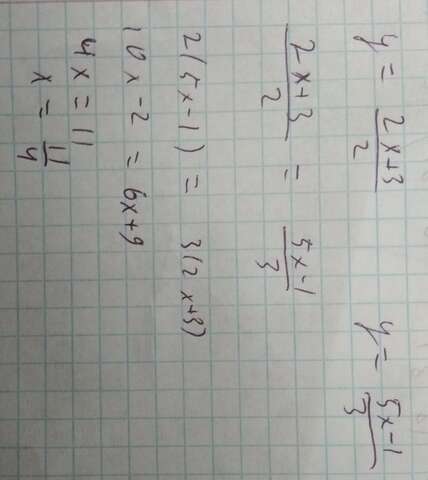 y = (2x+3)/2     y = (5x-1)/3
(2x+3)/2 = (5x-1)/3
2(5x-1) = 3(2x+3)
10x-2 = 6x+9
4x = 11
x = 11/4